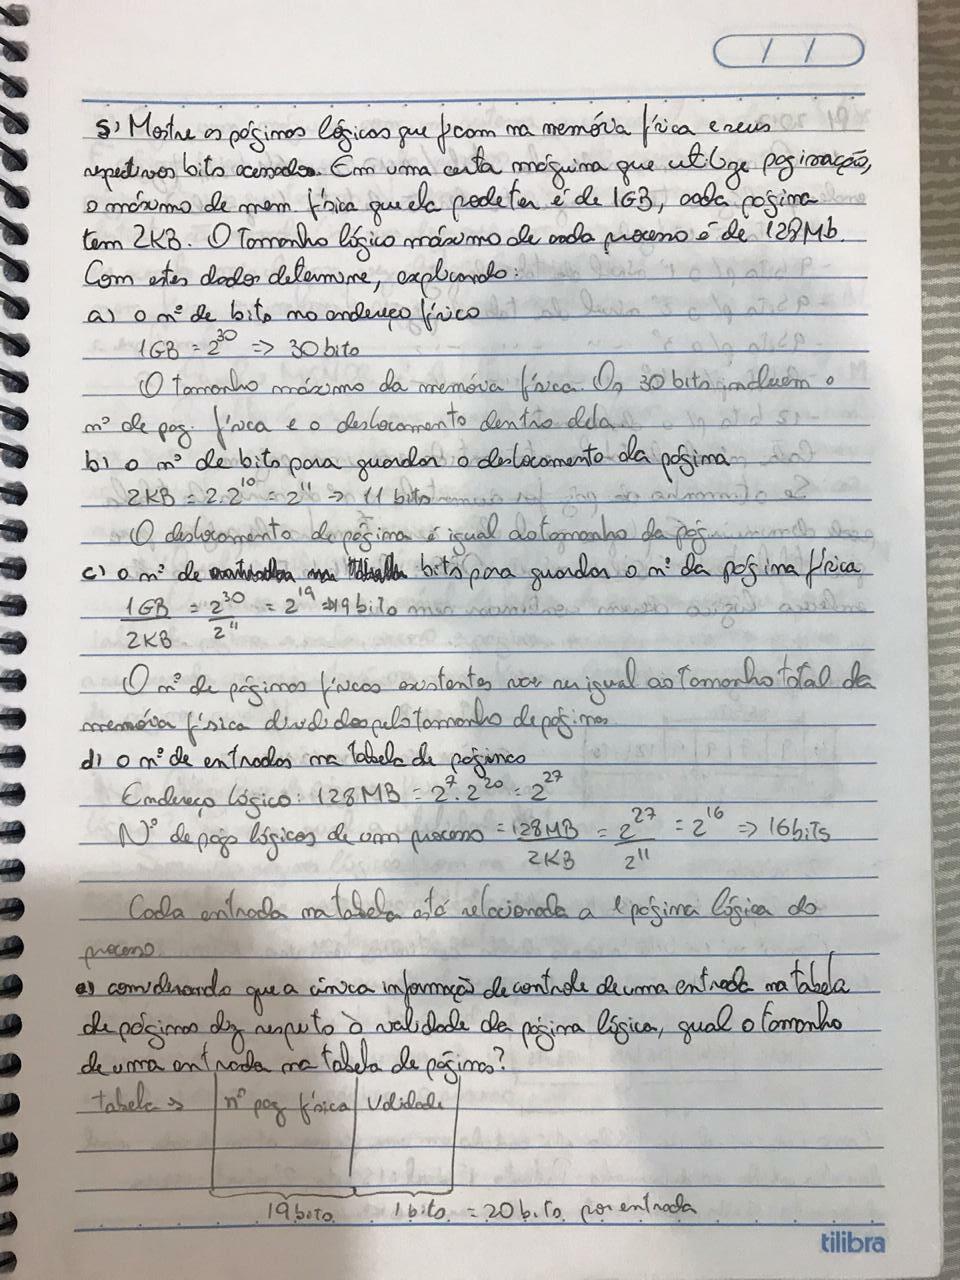 5) Mostre as páginas lógicas que ficam na memória física e seus
respectivos bits acessados. Em uma certa máquina que utilize paginação,
o máximo de mem. física que ela pode ter é de 1GB, cada página
tem 2KB. O Tamanho lógico máximo de cada processo é de 128Mb.
Com estes dados determine, explicando:
a) o nº de bits no endereço físico
1GB = 2^30 => 30 bits
O tamanho máximo da memória física. Os 30 bits incluem o
nº de pag. física e o deslocamento dentro dela.
b) o nº de bits para guardar o deslocamento da página
2KB = 2.2^10 = 2^11 => 11 bits
O deslocamento de página é igual ao tamanho da pág
c) o nº de bits para guardar o nº da página física
1GB/2KB = 2^30/2^11 = 2^19 => 19 bits
O nº de páginas físicas existentes vai ser igual ao tamanho total da
memória física divididos pelo tamanho de páginas
d) o nº de entradas na tabela de páginas
Endereço lógico: 128MB = 2^7.2^20 = 2^27
Nº de págs lógicas de um processo = 128MB/2KB = 2^27/2^11 = 2^16 => 16 bits
Cada entrada na tabela está relacionada a 1 página lógica do
processo
e) considerando que a única informação de controle de uma entrada na tabela
de páginas diz respeito à validade da página lógica, qual o tamanho
de uma entrada na tabela de páginas?
tabela => nº pag física validade
19 bits 1 bits = 20 bits por entrada
tilibra